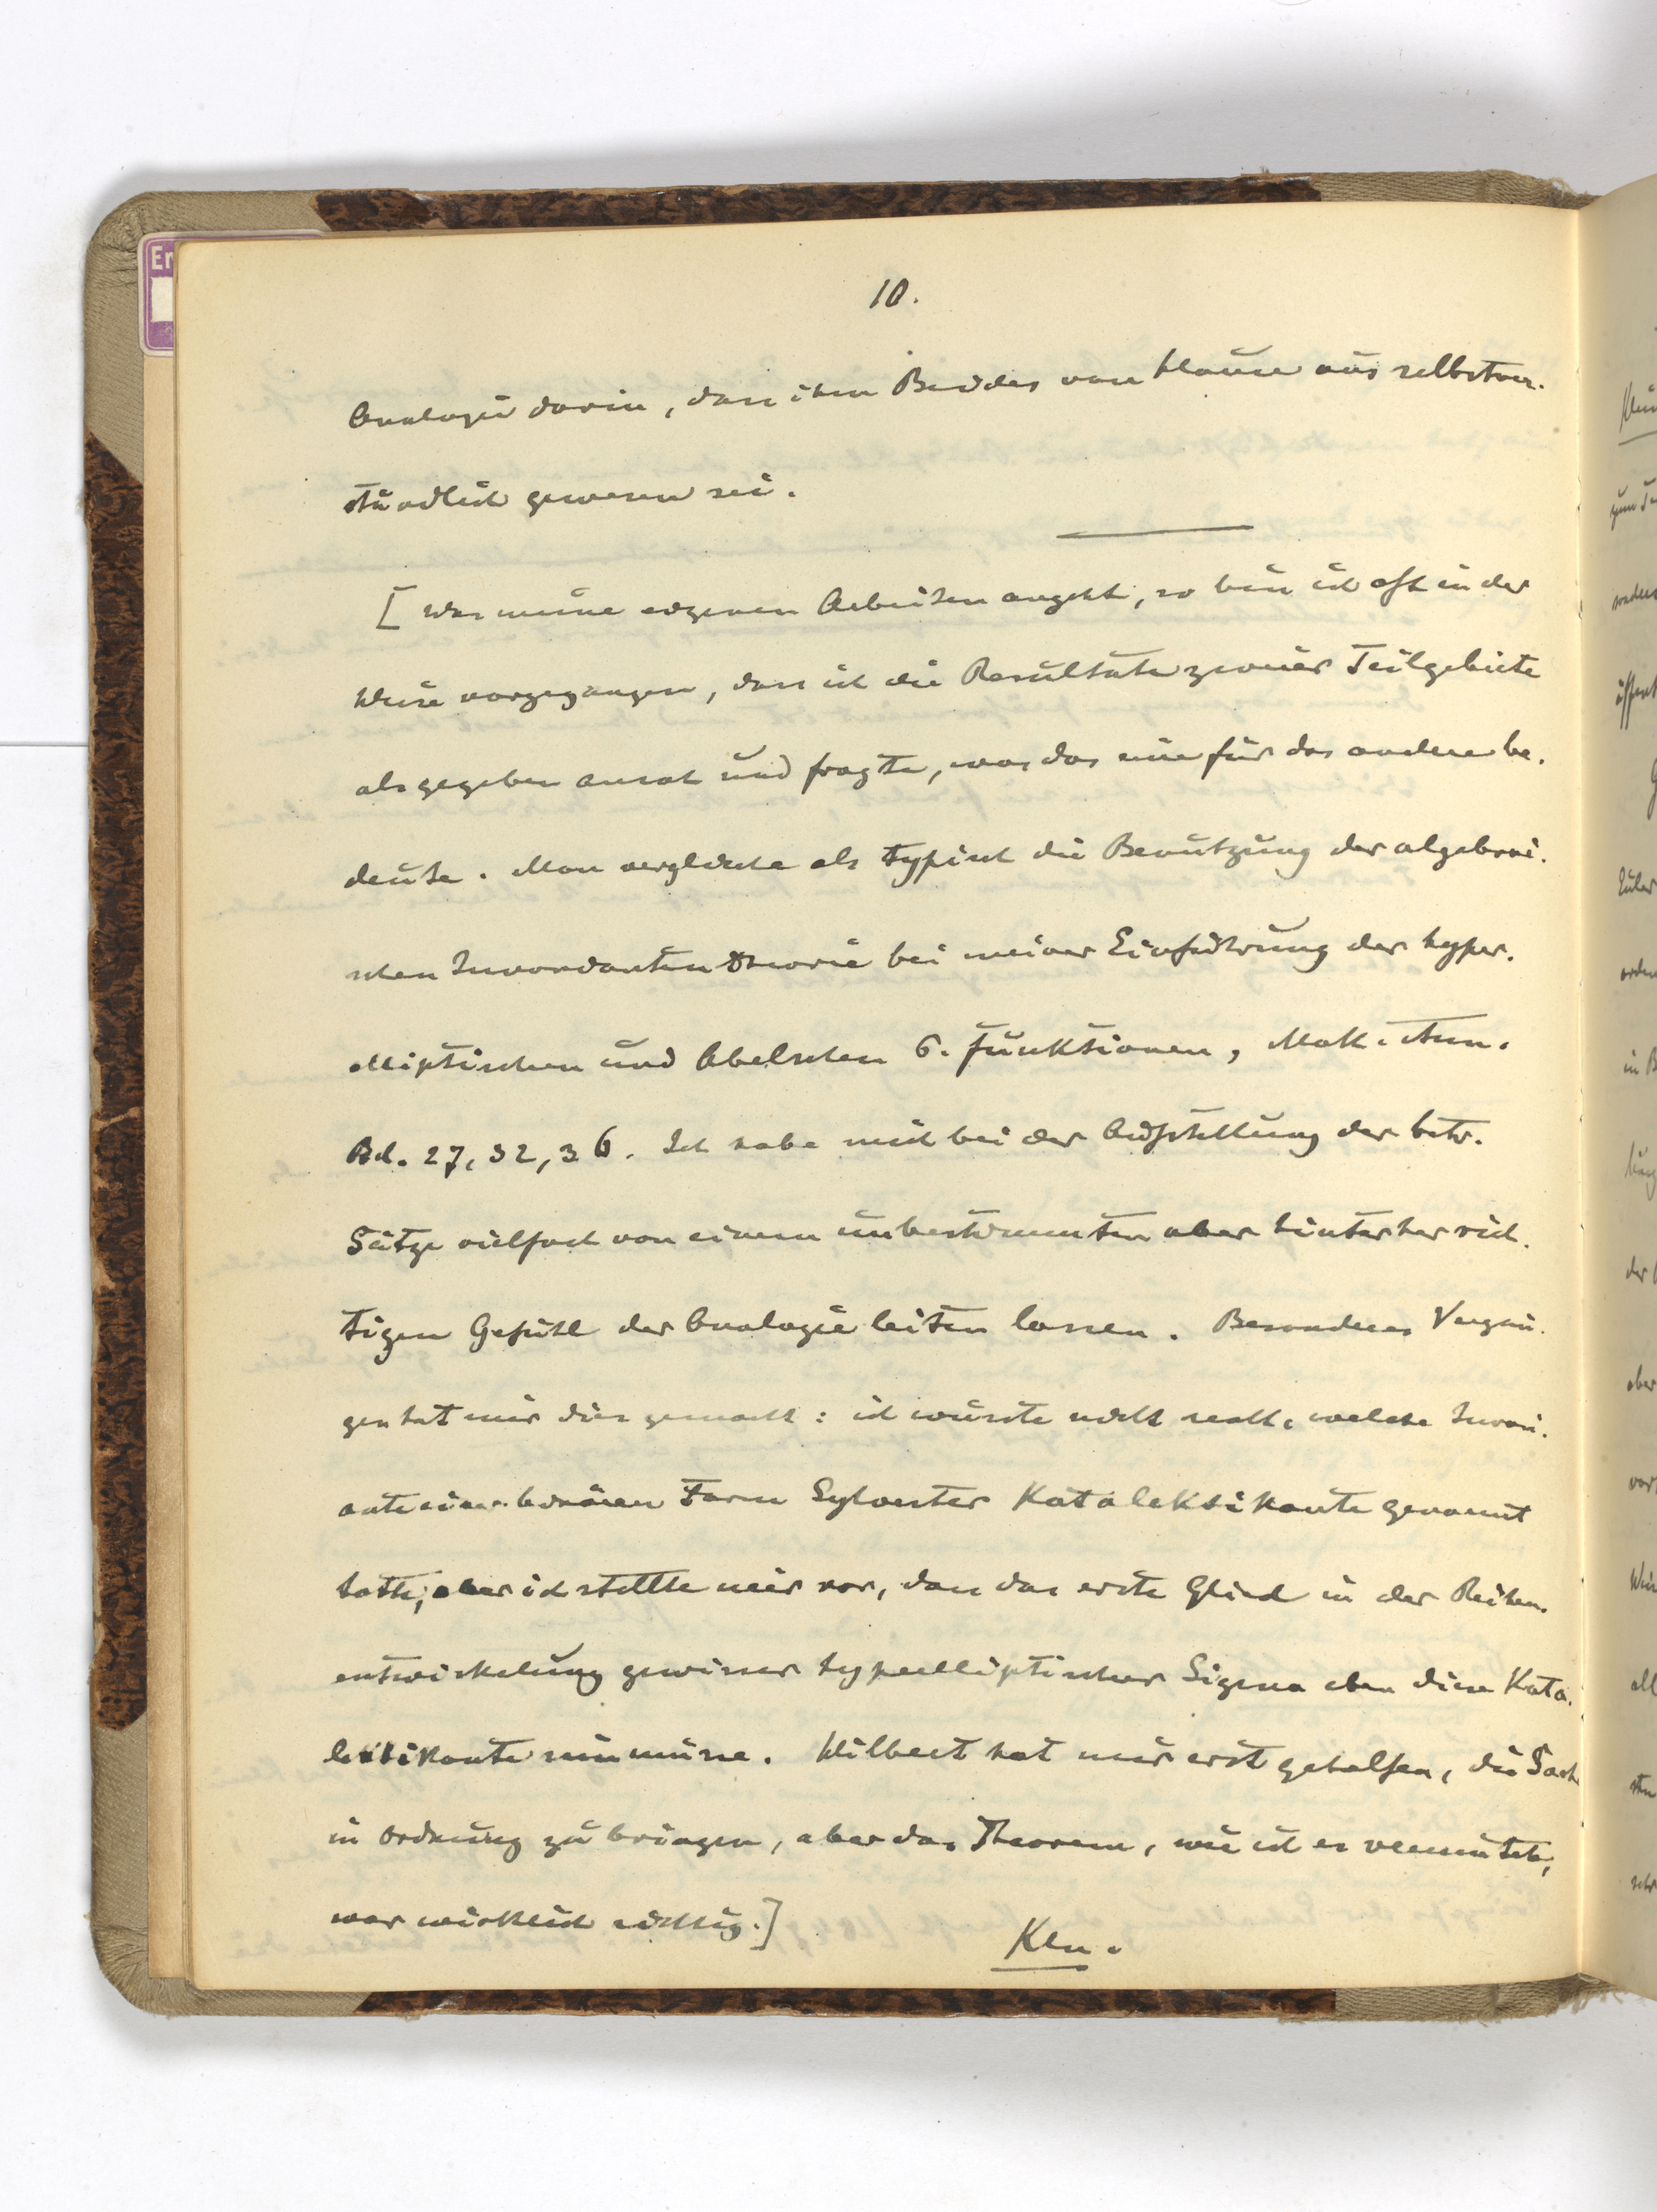 10.
Analogie darin, dass ihm Beides von Hause aus selbstver-
ständlich gewesen sei.
[Was meine eigenen Arbeiten angeht, so bin ich oft in der
Weise vorgegangen, dass ich die Resultate zweier Teilgebiete
als gegeben ansah und fragte, was das eine für das andere be-
deute. Man vergleiche als typisch die Benutzung der algebrai-
schen Invariantentheorie bei meiner Einführung der hyper-
elliptischen und Abelschen σ-funktionen, Math. Ann.
Bd. 27, 32, 36. Ich habe mich bei der Aufstellung der betr.
Sätze vielfach von einem unbestimmten aber hinterher rich-
tigen Gefühl der Analogie leiten lassen. Besonderes Vergnü-
gen hat mir dies gemacht: ich wusste nicht recht, welche Invari-
ante einer binären Form Sylvester Katalektikante genannt
hatte; aber ich stellte mir vor, dass das erste Glied in der Reihen-
entwickelung gewisser hyperelliptischer Sigma eben diese Kata-
lektikante sein müsse. Hilbert hat mir erst geholfen, die Sache
in Ordnung zu bringen, aber das Theorem, wie ich es vermutete,
war wirklich richtig.]
Kln.
Er